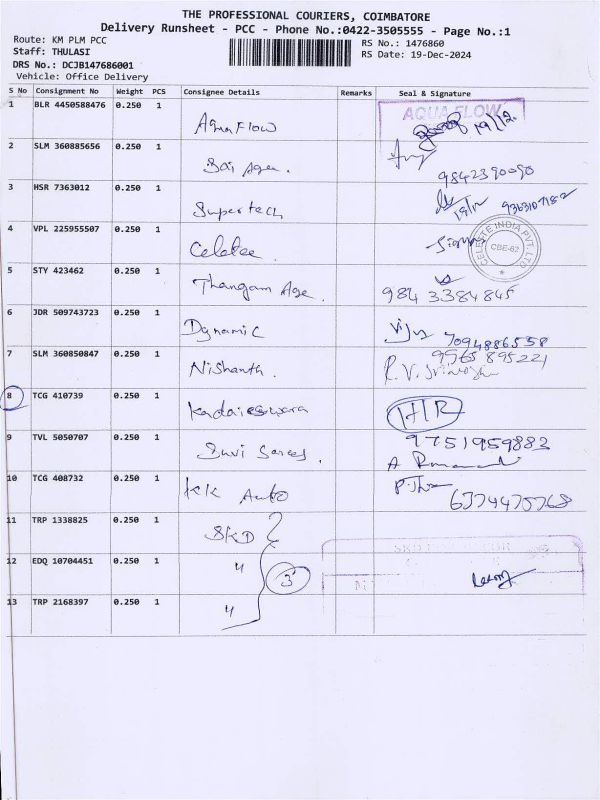 THE PROFESSIONAL COURIERS, COIMBATORE
Delivery Runsheet - PCC - Phone No.:0422-3505555 - Page No.:1
Route: KM PLM PCC
RS No.: 1476860
Staff: THULASI
RS Date: 19-Dec-2024
DRS No.: DCJB147686001
Vehicle: Office Delivery
S No Consignment No Weight PCS Consignee Details Remarks Seal & Signature
1 BLR 4450588476 0.250 1 Aqua Flow AQUA FLOW 19/12
2 SLM 360885656 0.250 1 Sai Agen. 9842390090
3 HSR 7363012 0.250 1 Supertech 19/12
4 VPL 225955507 0.250 1 Celetee CELESTE INDIA PVT. LTD CBE-62
5 STY 423462 0.250 1 Thangam Age. 984 3384845
6 JDR 509743723 0.250 1 Dynamic Vijy 7094886558
7 SLM 360850847 0.250 1 Nishanth. 9965895221
8 TCG 410739 0.250 1 Kadaieswara H/R
9 TVL 5050707 0.250 1 Suvi Sarees. 9751959882
10 TCG 408732 0.250 1 KK Auto 6374475768
11 TRP 1338825 0.250 1 SKD
12 EDQ 10704451 0.250 1 〃 3
13 TRP 2168397 0.250 1 〃